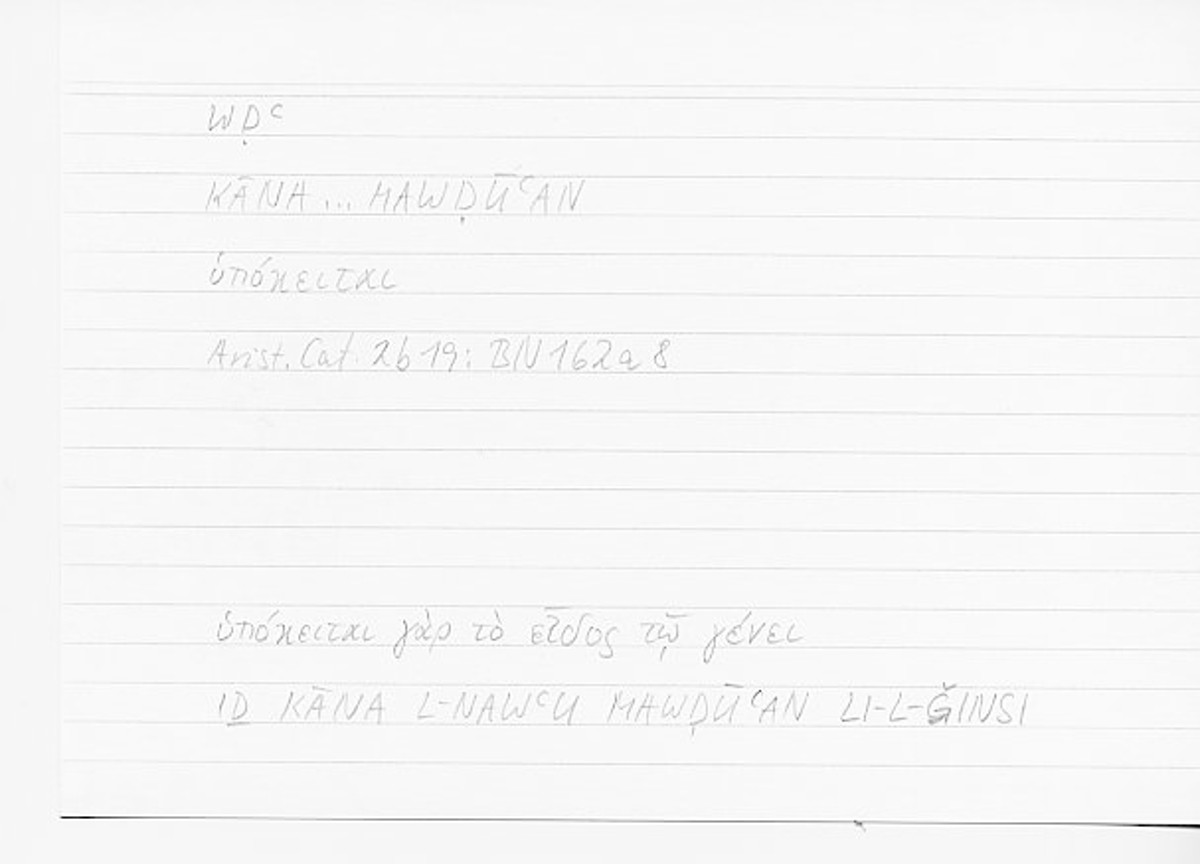 WḌʿ
KĀNA ... MAWḌŪʿAN
ὑπόκειται
Arist. Cat. 2b19: BN 162a8
ὑπόκειται γὰρ τὸ εἶδος τῷ γένει
IḎ KĀNA L-NAWʿU MAWḌŪʿAN LI-L-ǦINSI